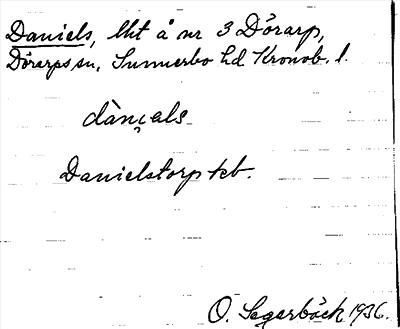 Daniels, lht å nr 3 Dörarp,
Dörarps sn, Sunnerbo hd Kronob. l.
dànı̨els
Danielstorp tcb.
O. Segerbäck 1936.